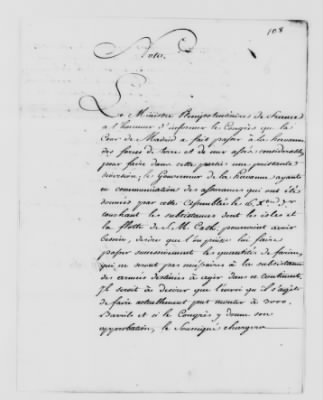 108
Note.
Le Ministre Plenipotentiaire de France
a l'honneur d'informer le Congrès que la
Cour de Madrid a fait passer à la havanne
des forces de terre et de mer assés considerables
pour faire dans cette partie une puissante
diversion, le Gouverneur de la havanne ayant
eu communication des assurances qui ont été
données par cette Assemblée le 16. Xbre dr
touchant les subsistances dont les isles et
la flotte de S. M. Cath. pourroient avoir
besoin, desire que l'on puisse lui faire
passer successivement les quantités de farines
qui ne seront pas necessaires à la subsistance
des armées destinées à agir dans ce continent,
Il seroit à desirer que l'envoi qu'il s'agit
de faire actuellement put monter à 3000.
Barils et si le Congrès y donne son
approbation, le Soussigné chargera